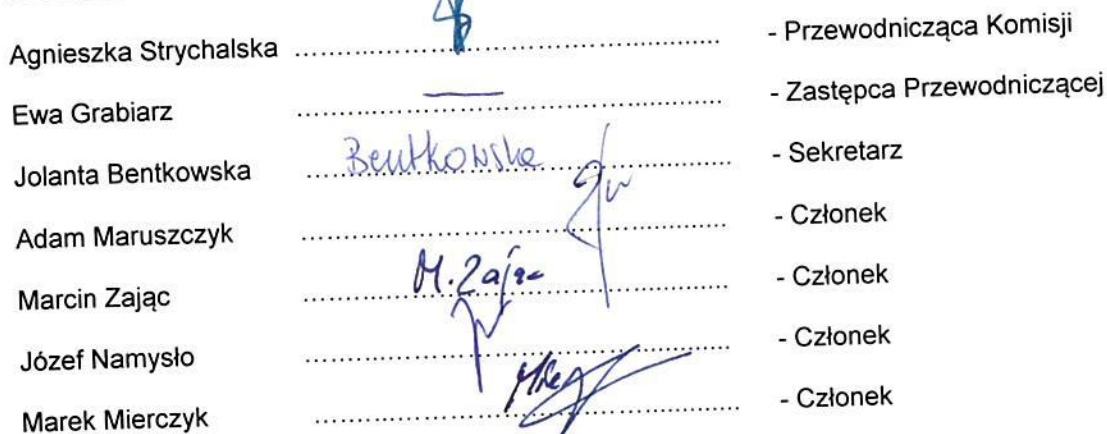 Agnieszka Strychalska ........................................ - Przewodnicząca Komisji
Ewa Grabiarz ........................................ - Zastępca Przewodniczącej
Jolanta Bentkowska ........................................ Bentkowska - Sekretarz
Adam Maruszczyk ........................................ - Członek
Marcin Zając ........................................ M. Zając - Członek
Józef Namysło ........................................ - Członek
Marek Mierczyk ........................................ - Członek